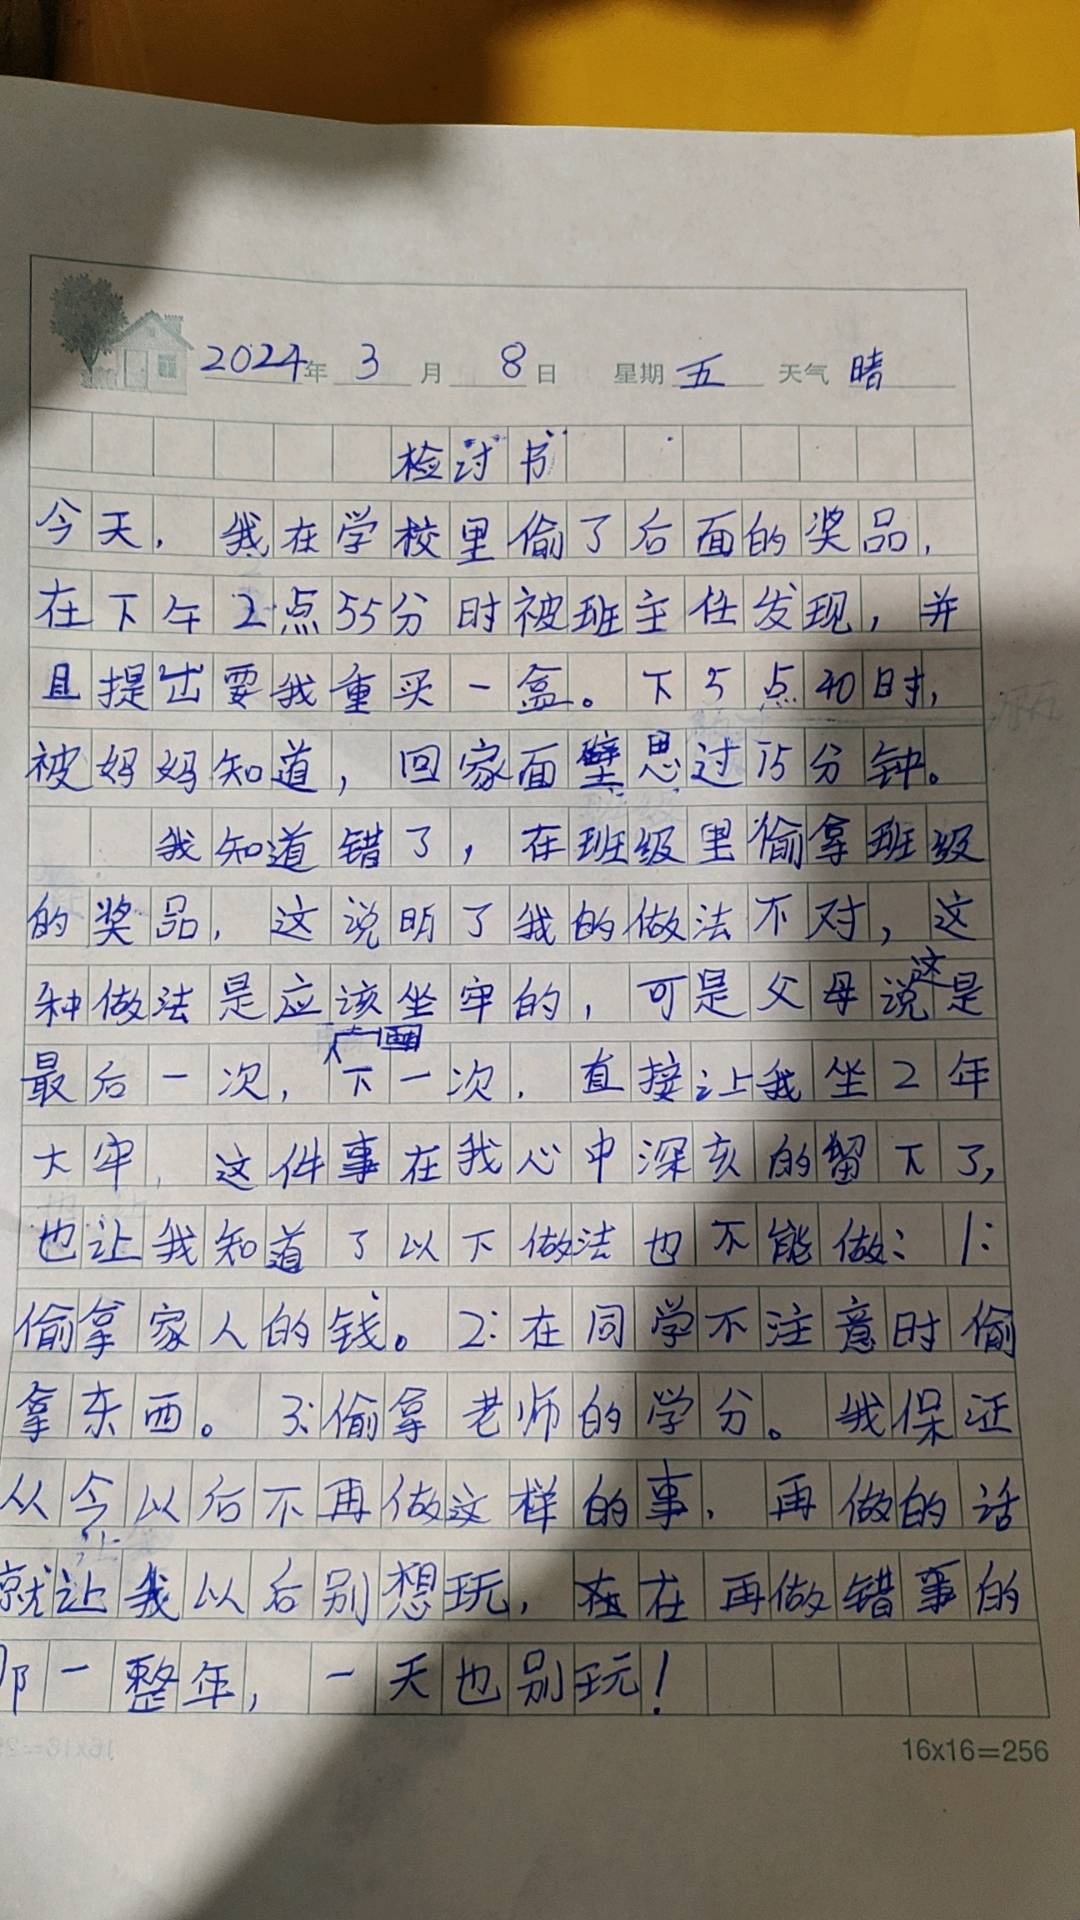 2024年 3 月 8 日 星期 五 天气 晴
检讨书
今天，我在学校里偷了后面的奖品，
在下午2点55分时被班主任发现，并
且提出要我重买一盒。下5点40时，
被妈妈知道，回家面壁思过15分钟。
我知道错了，在班级里偷拿班级
的奖品，这说明了我的做法不对，这
种做法是应该坐牢的，可是父母说这是
最后一次，下一次，直接让我坐2年
大牢，这件事在我心中深刻的留下了，
也让我知道了以下做法也不能做：1:
偷拿家人的钱。2:在同学不注意时偷
拿东西。3:偷拿老师的学分。我保证
从今以后不再做这样的事，再做的话
就让我以后别想玩，在在再做错事的
那一整年，一天也别玩！
16x16=256